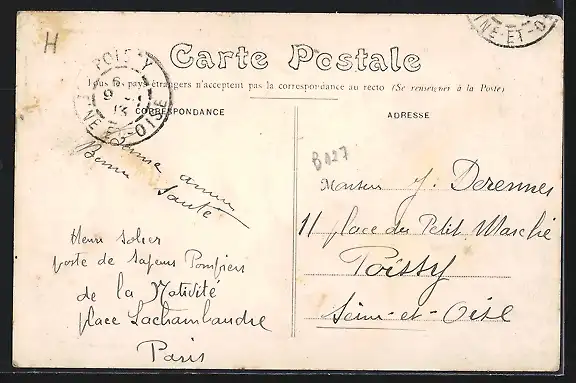 H
Carte Postale
Tous les pays étrangers n'acceptent pas la correspondance au recto (Se renseigner à la Poste)
POISSY
6
9
13
SEINE-ET-OISE
INE-ET-O
CORRESPONDANCE
ADRESSE
Bonne année
Bonne Santé
B027
Monsieur J. Derennes
11 place du Petit Marché
Poissy
Seine-et-Oise
Henri
poste de Sapeurs Pompiers
de la Nativité
place Lachambaudie
Paris